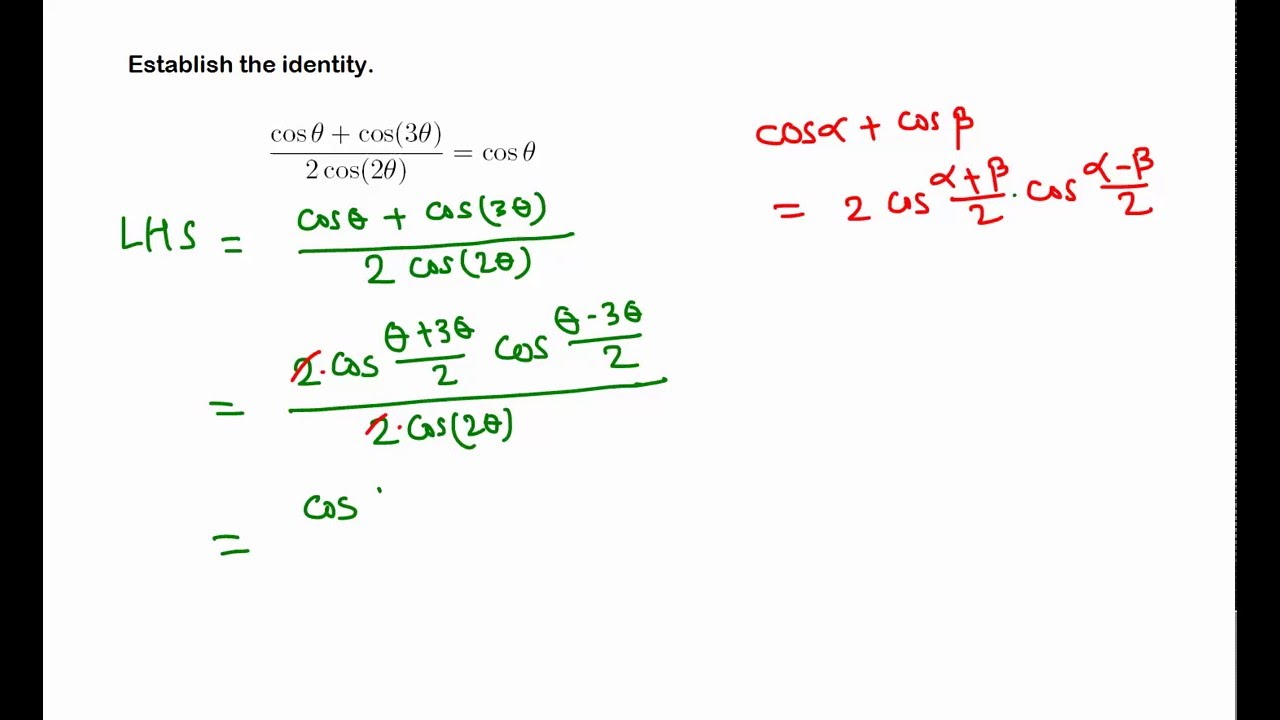 Establish the identity.
\frac{\cos\theta + \cos(3\theta)}{2\cos(2\theta)} = \cos\theta
cosα + cos β
= 2 cos \frac{α+β}{2} · cos \frac{α-β}{2}
LHS = \frac{cosθ + cos(3θ)}{2 cos(2θ)}
= \frac{2·cos \frac{θ+3θ}{2} cos \frac{θ-3θ}{2}}{2·cos(2θ)}
= cos